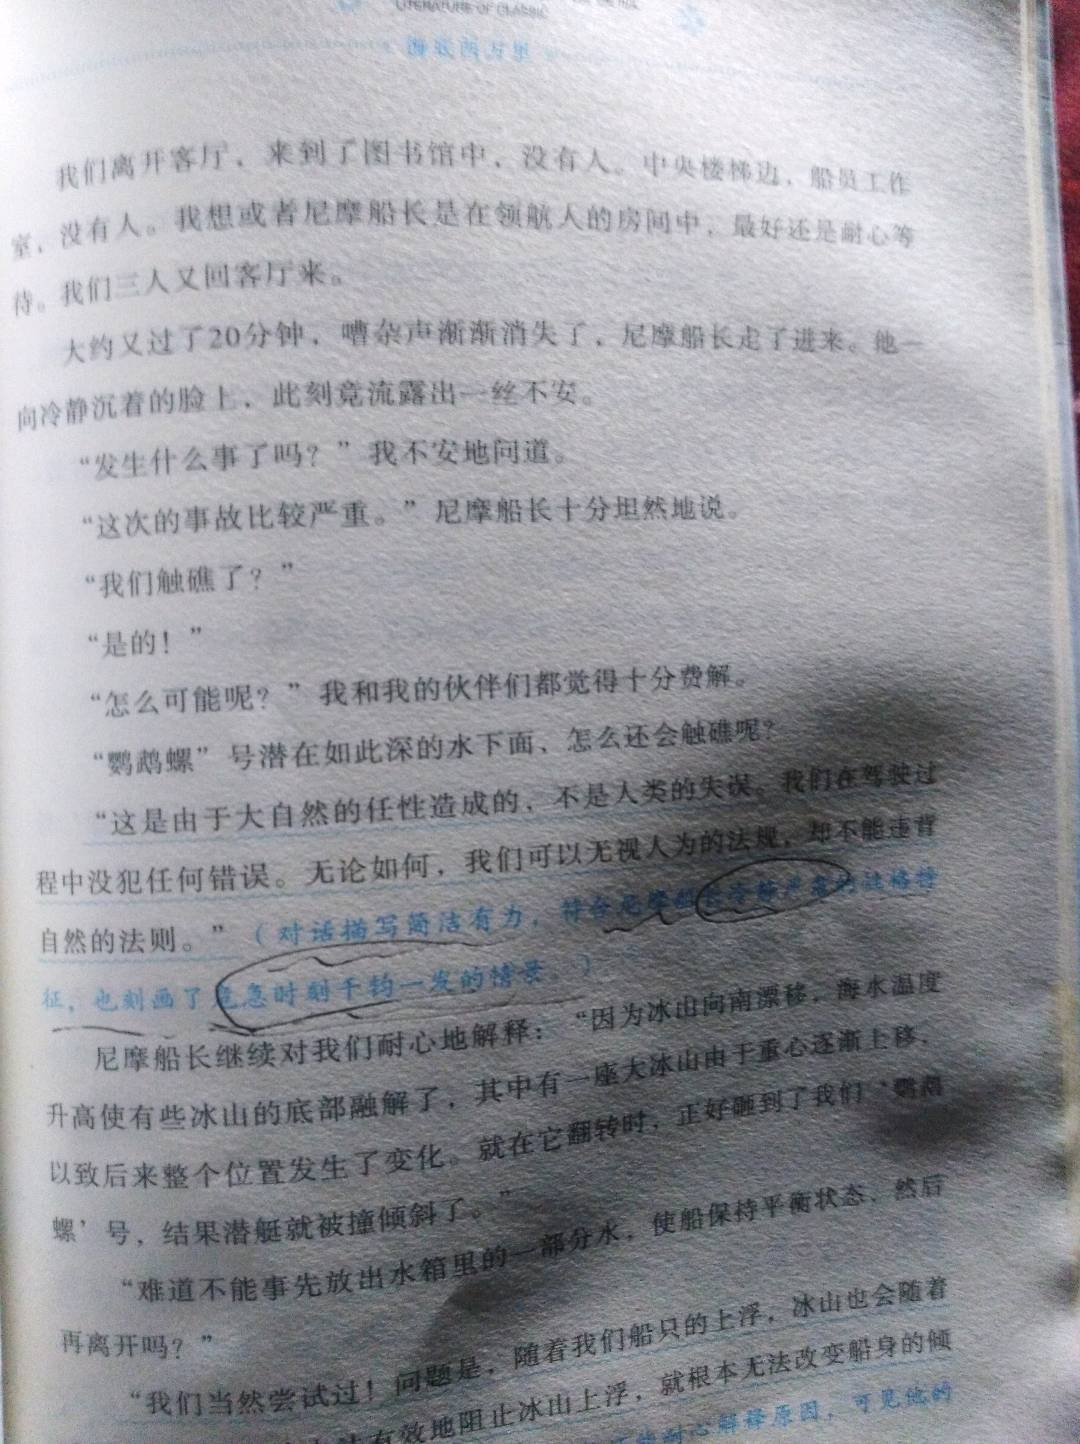 LITERATURE OF CLASSIC
海底两万里
我们离开客厅，来到了图书馆中，没有人。中央楼梯边，船员工作
室，没有人。我想或者尼摩船长是在领航人的房间中，最好还是耐心等
待。我们三人又回客厅来。
大约又过了20分钟，嘈杂声渐渐消失了，尼摩船长走了进来。他一
向冷静沉着的脸上，此刻竟流露出一丝不安。
“发生什么事了吗？”我不安地问道。
“这次的事故比较严重。”尼摩船长十分坦然地说。
“我们触礁了？”
“是的！”
“怎么可能呢？”我和我的伙伴们都觉得十分费解。
“鹦鹉螺”号潜在如此深的水下面，怎么还会触礁呢？
“这是由于大自然的任性造成的，不是人类的失误。我们在驾驶过
程中没犯任何错误。无论如何，我们可以无视人为的法规，却不能违背
自然的法则。”（对话描写简洁有力，符合尼摩船长冷静严肃的性格特
征，也刻画了危急时刻千钧一发的情景。）
尼摩船长继续对我们耐心地解释：“因为冰山向南漂移，海水温度
升高使有些冰山的底部融解了，其中有一座大冰山由于重心逐渐上移，
以致后来整个位置发生了变化。就在它翻转时，正好砸到了我们‘鹦鹉
螺’号，结果潜艇就被撞倾斜了。”
“难道不能事先放出水箱里的一部分水，使船保持平衡状态，然后
再离开吗？”
“我们当然尝试过！问题是，随着我们船只的上浮，冰山也会随着
有效地阻止冰山上浮，就根本无法改变船身的倾
耐心解释原因，可见他的